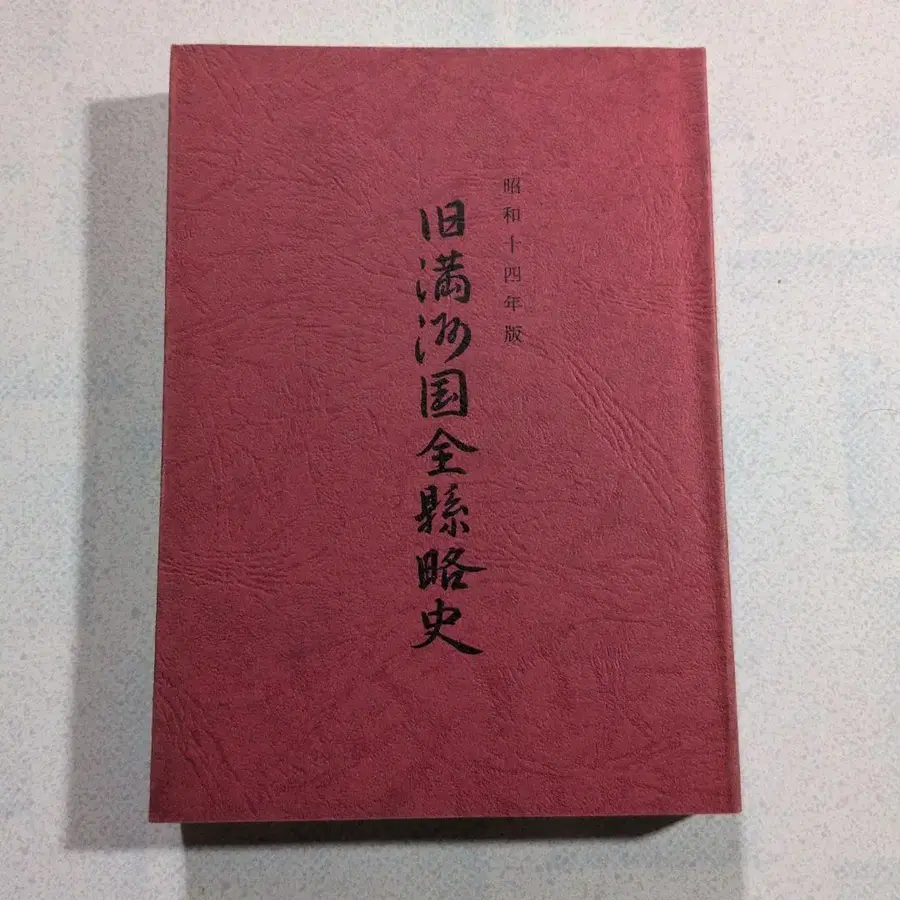 昭和十四年版
旧満洲国全縣略史